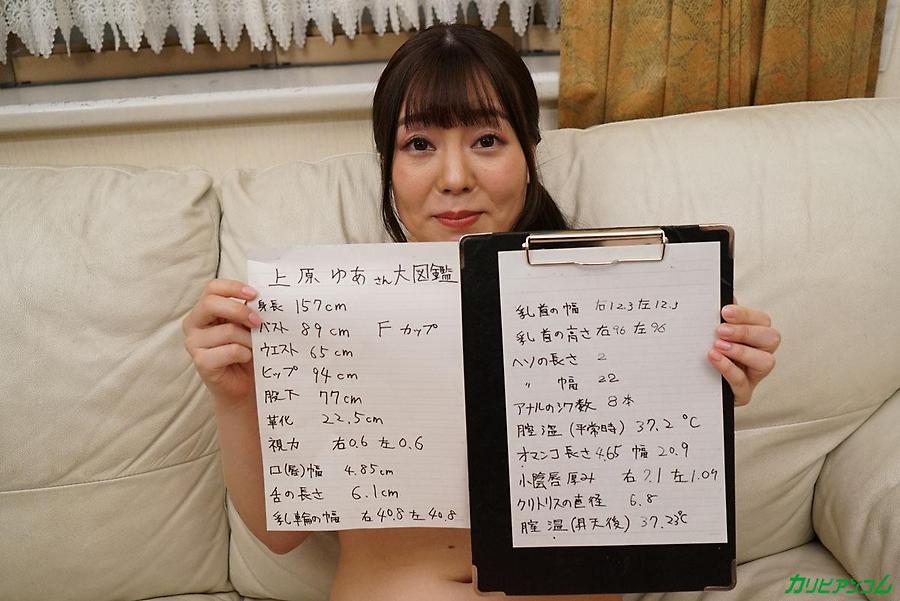 上原ゆあさん大図鑑
身長 157cm
バスト 89cm Fカップ
ウエスト 65cm
ヒップ 94cm
股下 77cm
革化 22.5cm
視力 右0.6 左0.6
口(唇)幅 4.85cm
舌の長さ 6.1cm
乳輪の幅 右40.8 左40.8
乳首の幅 右12.3 左12.3
乳首の高さ 右96 左96
ヘソの長さ 2
〃 幅 22
アナルのシワ数 8本
膣温(平常時) 37.2℃
オマンコ長さ 4.65 幅 20.9
小陰唇厚み 右7.1 左1.09
クリトリスの直径 6.8
膣温(昇天後) 37.23℃
カリビアンコム